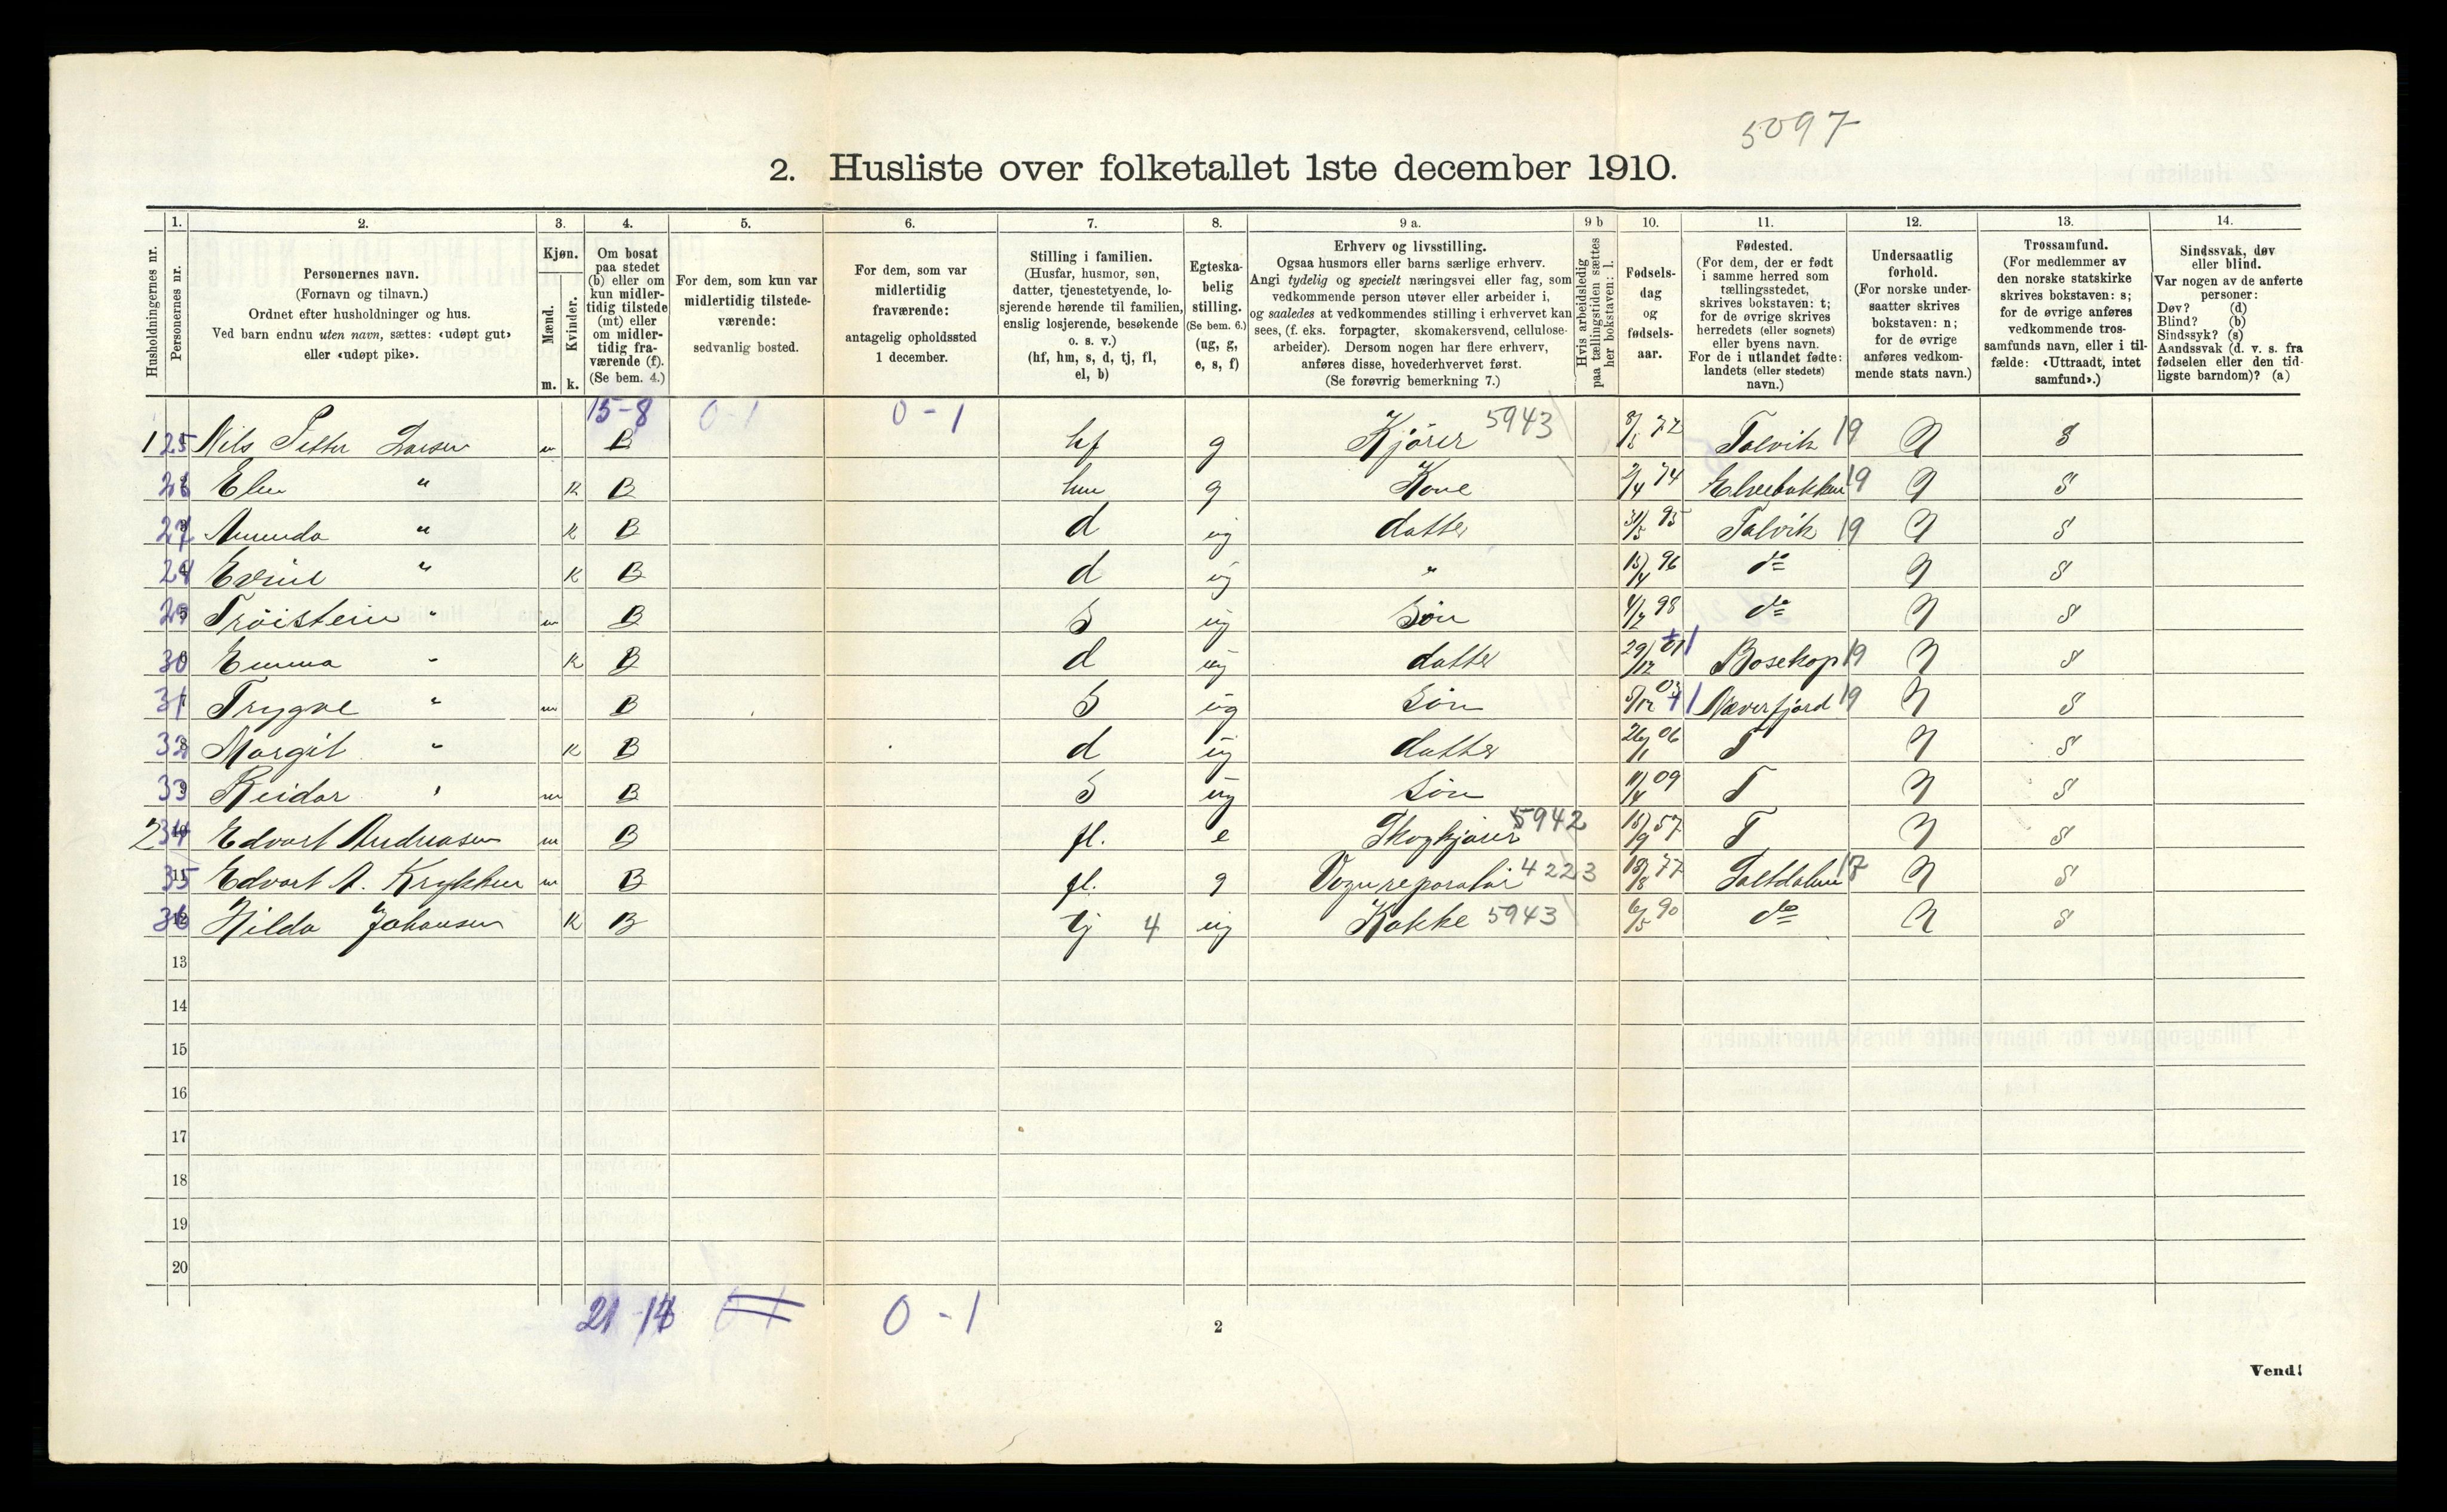 5097
2. Husliste over folketallet 1ste december 1910.
1. 2. 3. 4. 5. 6. 7. 8. 9 a. 9 b 10. 11. 12. 13. 14.
Husholdningernes nr.
Personernes nr.
Personernes navn.
(Fornavn og tilnavn.)
Ordnet efter husholdninger og hus.
Ved barn endnu uten navn, sættes: «udøpt gut»
eller «udøpt pike».
Kjøn.
Mænd.
Kvinder.
m. k.
Om bosat
paa stedet
(b) eller om
kun midler-
tidig tilstede
(mt) eller
om midler-
tidig fra-
værende (f).
(Se bem. 4.)
For dem, som kun var
midlertidig tilstede-
værende:
sedvanlig bosted.
For dem, som var
midlertidig
fraværende:
antagelig opholdssted
1 december.
Stilling i familien.
(Husfar, husmor, søn,
datter, tjenestetyende, lo-
sjerende hørende til familien,
enslig losjerende, besøkende
o. s. v.)
(hf, hm, s, d, tj, fl,
el, b)
Egteska-
belig
stilling.
(Se bem. 6.)
(ug, g,
e, s, f)
Erhverv og livsstilling.
Ogsaa husmors eller barns særlige erhverv.
Angi tydelig og specielt næringsvei eller fag, som
vedkommende person utøver eller arbeider i,
og saaledes at vedkommendes stilling i erhvervet kan
sees, (f. eks. forpagter, skomakersvend, cellulose-
arbeider). Dersom nogen har flere erhverv,
anføres disse, hovederhvervet først.
(Se forøvrig bemerkning 7.)
Hvis arbeidsledig
paa tællingstiden sættes
her bokstaven: l.
Fødsels-
dag
og
fødsels-
aar.
Fødested.
(For dem, der er født
i samme herred som
tællingsstedet,
skrives bokstaven: t;
for de øvrige skrives
herredets (eller sognets)
eller byens navn.
For de i utlandet fødte:
landets (eller stedets)
navn.)
Undersaatlig
forhold.
(For norske under-
saatter skrives
bokstaven: n;
for de øvrige
anføres vedkom-
mende stats navn.)
Trossamfund.
(For medlemmer av
den norske statskirke
skrives bokstaven: s;
for de øvrige anføres
vedkommende tros-
samfunds navn, eller i til-
fælde: «Uttraadt, intet
samfund».)
Sindssvak, døv
eller blind.
Var nogen av de anførte
personer:
Døv? (d)
Blind? (b)
Sindssyk? (s)
Aandssvak (d. v. s. fra
fødselen eller den tid-
ligste barndom)? (a)
15-8 0-1 0-1
1 25 Nils Petter Larsen m B hf g Kjører 5943 72 Talvik 19 N S
26 Elen " k B hm g Kone 2/4 74 Elvebakken 19 N S
27 Amanda " k B d ug datter 31/5 95 Talvik 19 N S
28 " k B d ug " 13/4 96 do N S
29 Tröistein " m B S ug Søn 4/2 98 do N S
30 Emma " k B d ug datter 29/12 01 Bosekop 19 N S
31 Trygve " m B S ug Søn 5/12 03 Næverfjord 19 N S
32 Margit " k B d ug datter 26/1 06 T N S
33 Reidar " m B S ug Søn 11/4 09 T N S
2 34 Edvart Andreasen m B fl. e Skogkjører 5942 18/9 57 T N S
35 Edvart A. Krykken m B fl. g Vognreparatør 4223 18/8 77 Saltdalen 17 N S
36 Hilda Johansen k B tj 4 ug Kokke 5943 6/5 90 do N S
13
14
15
16
17
18
19
20
21 0-1
2
Vend!